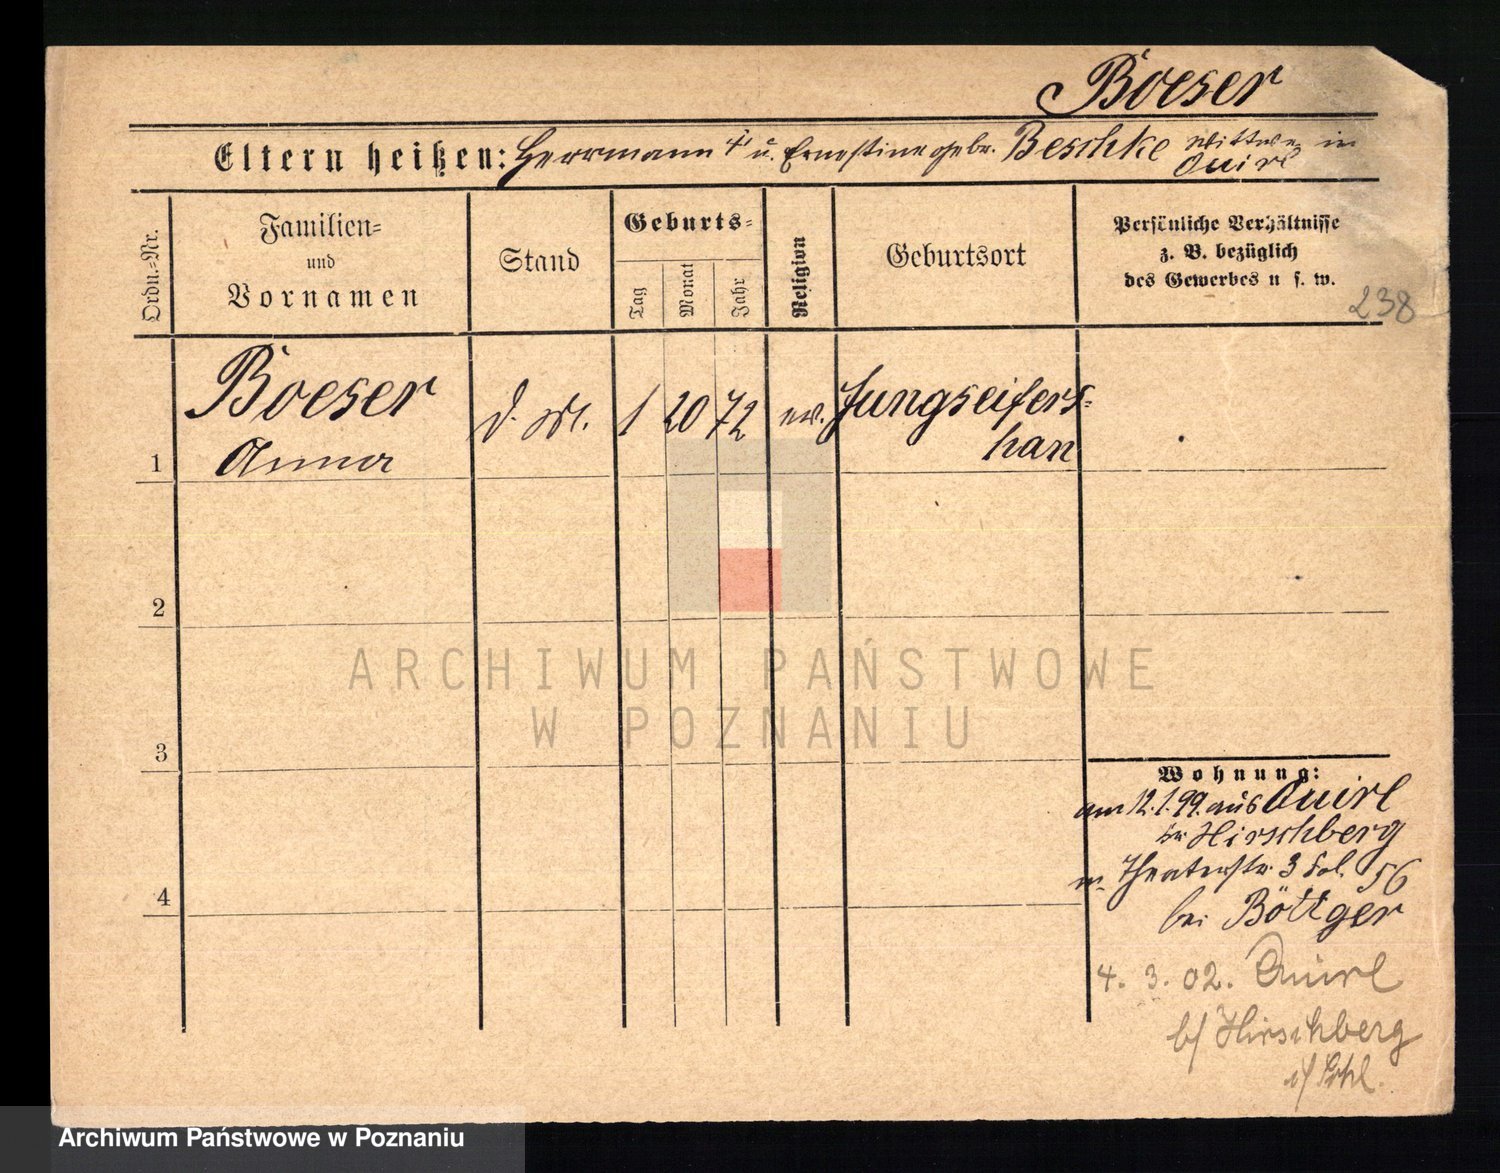 Boeser
Eltern heißen: Herrmann † u. Ernestine gebr. Beschke Wittwe in
Quirl
Ordn.-Nr.
Familien-
und
Vornamen
Stand
Geburts-
Tag
Monat
Jahr
Religion
Geburtsort
Persönliche Verhältnisse
z. B. bezüglich
des Gewerbes u s. w.
238
1
Boeser
Anna
d. M.
1
20
72
ev.
Jungseifers-
han
2
3
4
Wohnung:
am 12.1.99. aus Quirl
Kr. Hirschberg
n. Theaterstr. 3 Fol. 56
bei Böttger
4. 3. 02. Quirl
b/ Hirschberg
i/ Schl.
ARCHIWUM PAŃSTWOWE
W POZNANIU
Archiwum Państwowe w Poznaniu